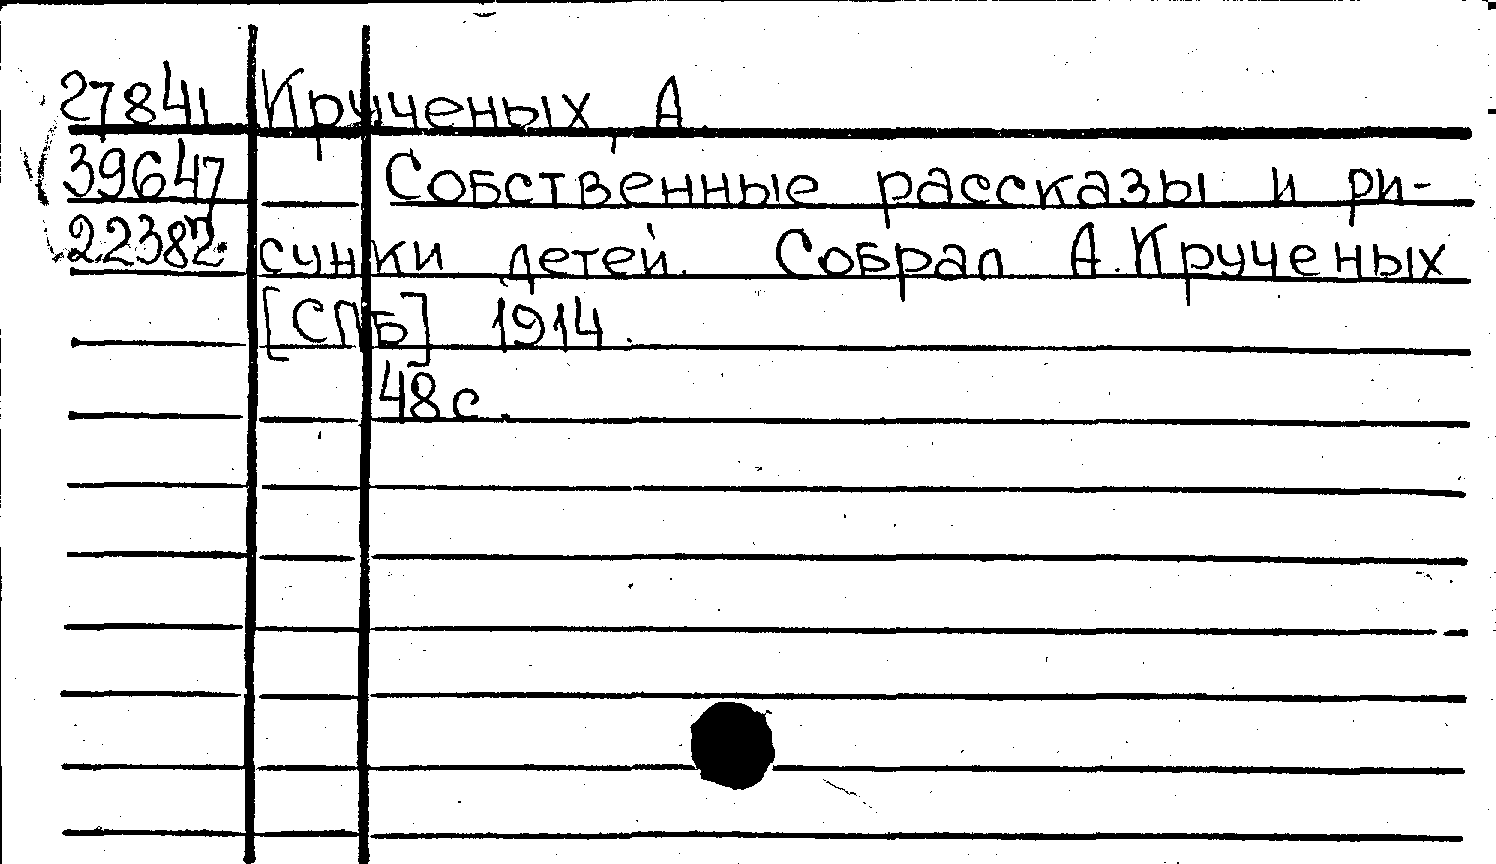 27841 Крученых, А.
39647 Собственные рассказы и ри-
22382 сунки детей. Собрал А. Крученых
[СПБ] 1914.
48 с.